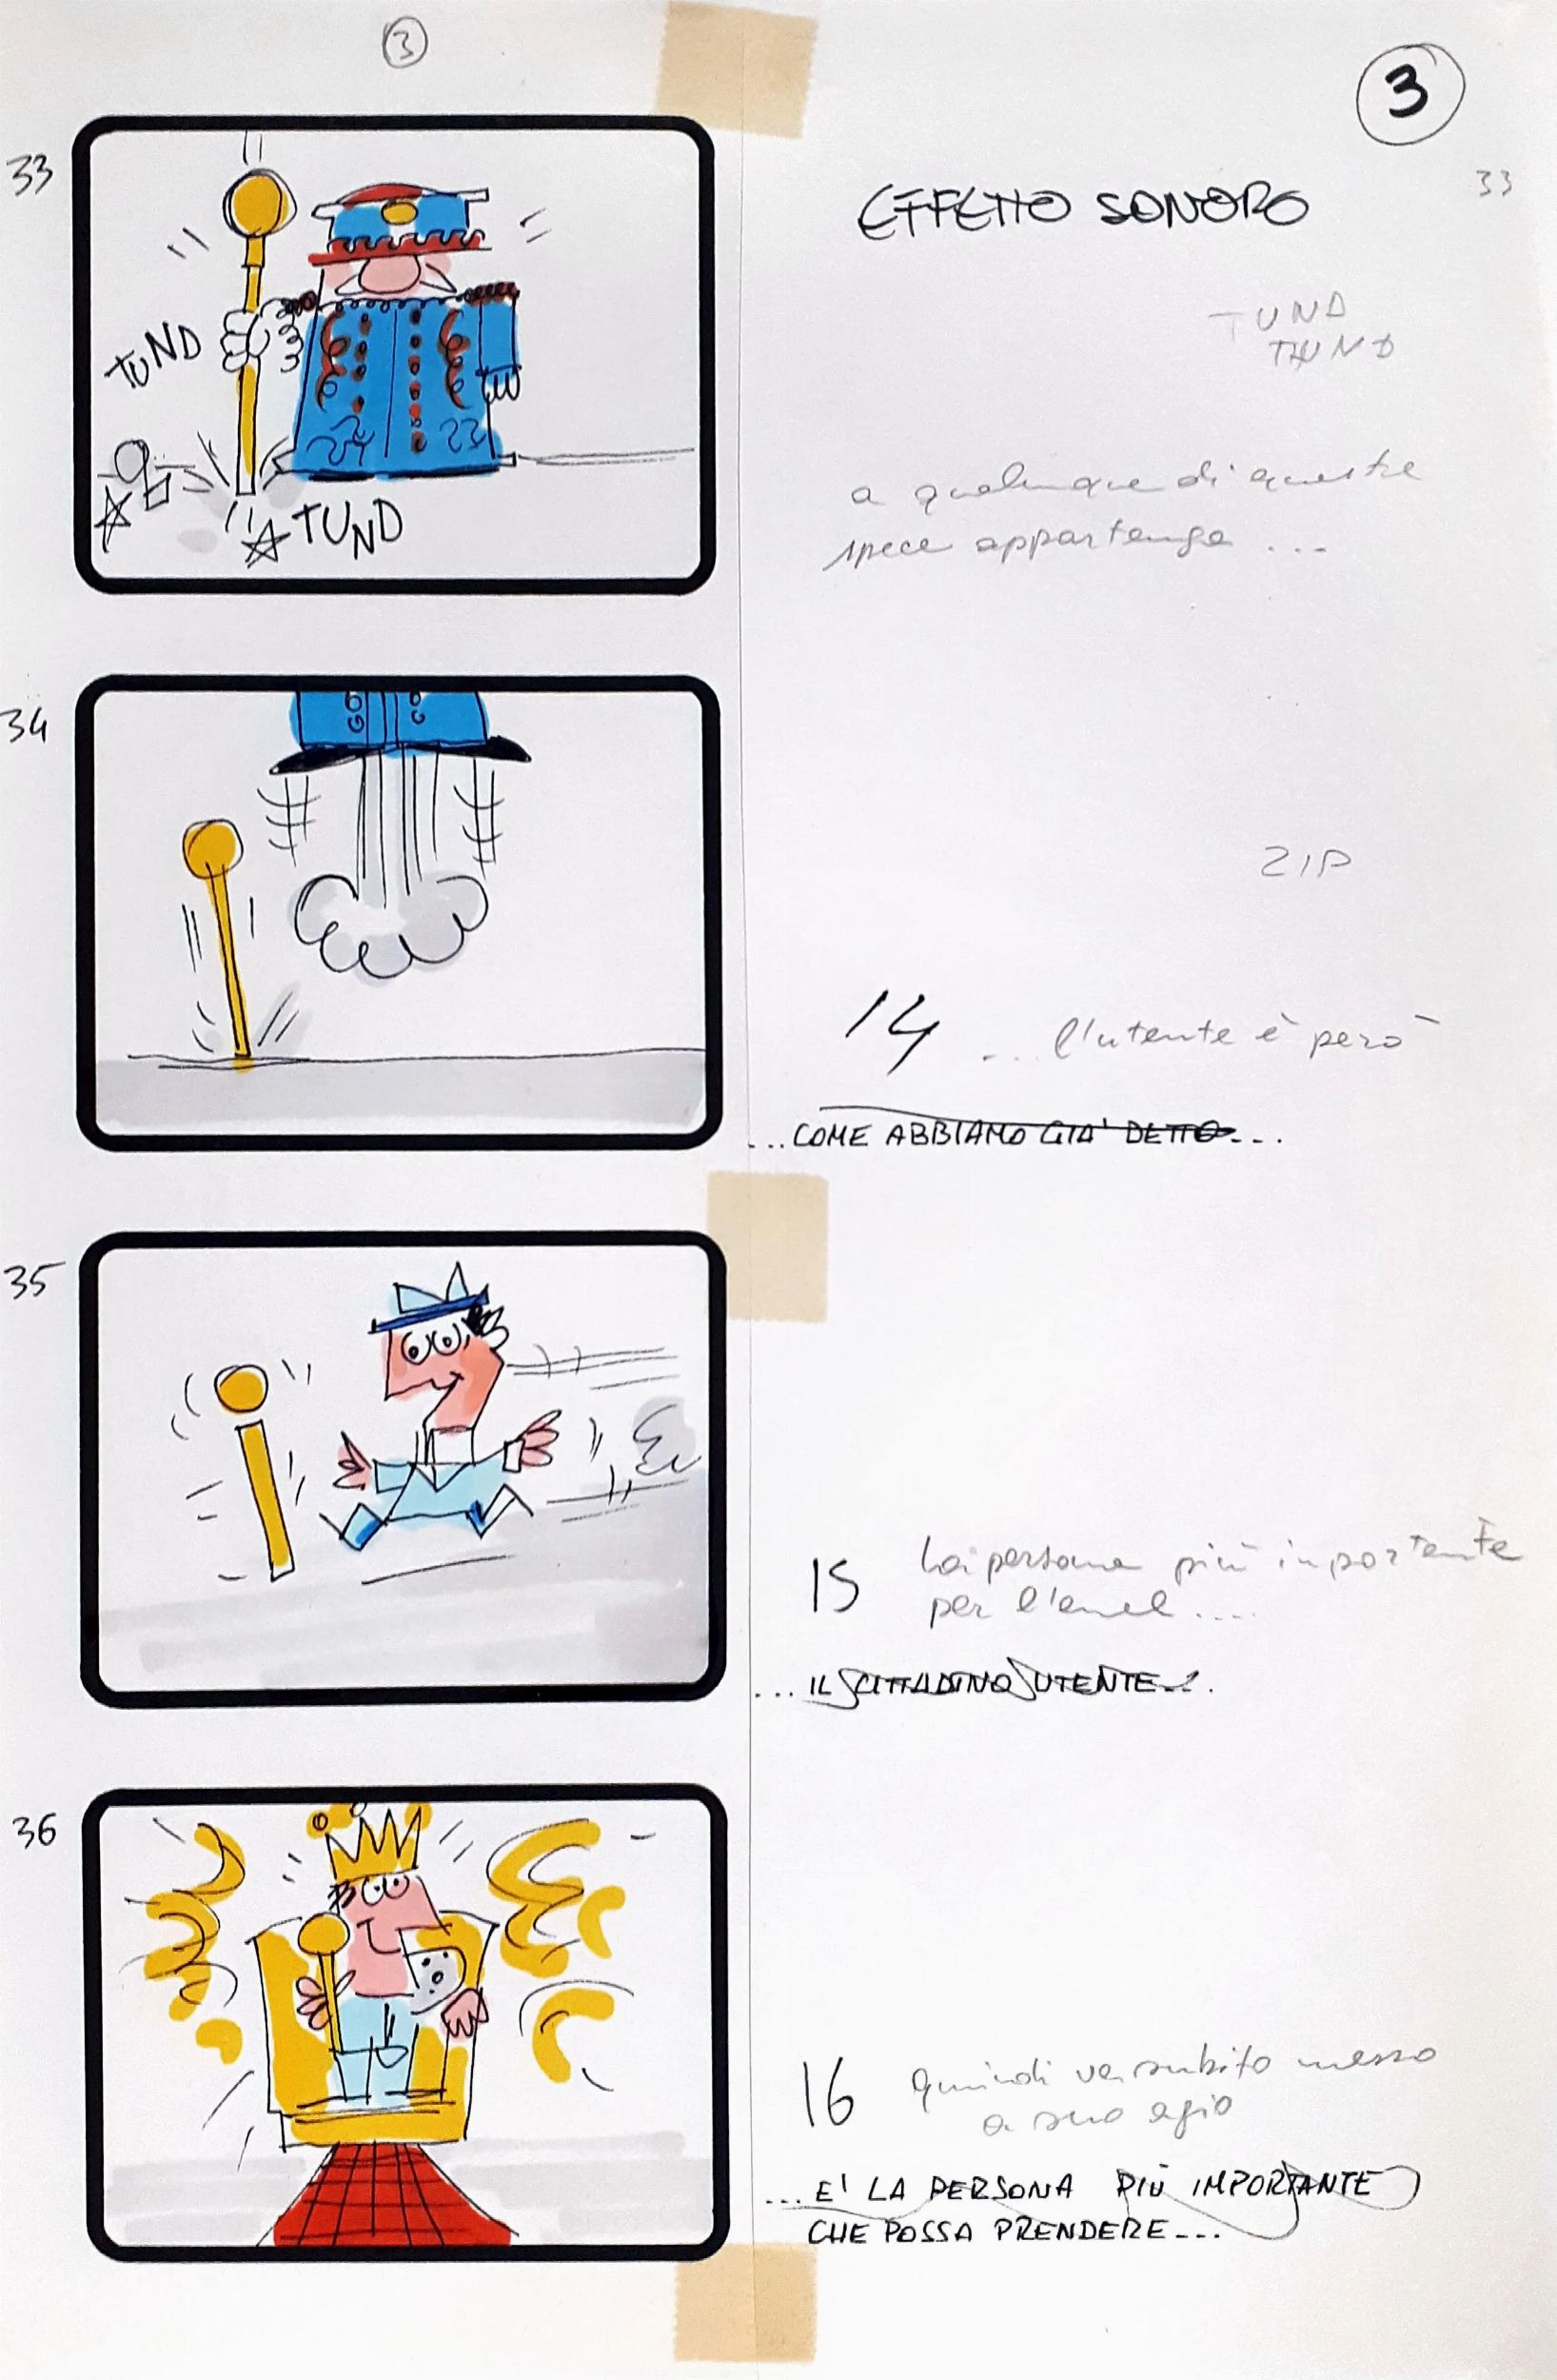 3
3
33
33
EFFETTO SONORO
TUND
TUND
TUND
TUND
a qualunque di queste
spece appartenga ...
34
ZIP
14
... l'utente è però
...COME ABBIAMO GIA' DETTO...
35
15
La persona più importante
per l'enel....
...IL CITTADINO UTENTE...
36
16
quindi va subito messo
a suo agio
...E' LA PERSONA PIÙ IMPORTANTE
CHE POSSA PRENDERE...